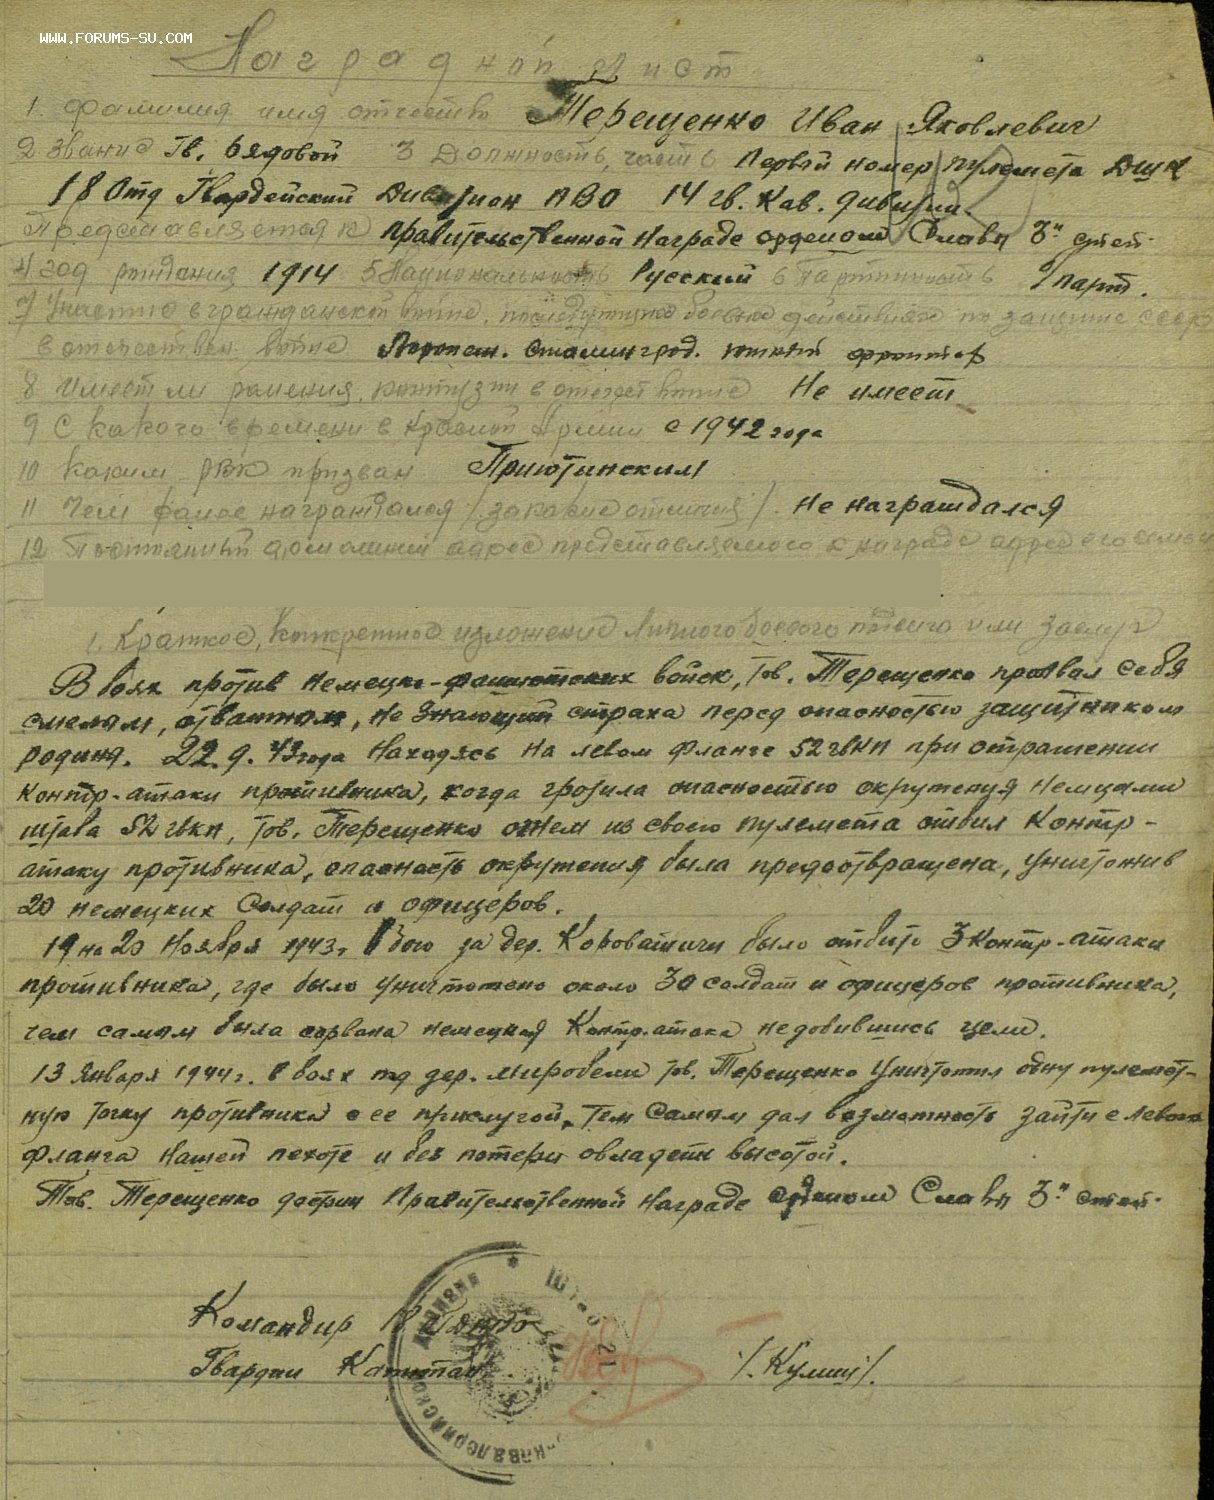 WWW.FORUMS-SU.COM
Наградной лист
1. Фамилия имя отчество Терещенко Иван Яковлевич
2 Звание Гв. Рядовой 3 Должность, часть Первый номер пулемета ДШК
18 Отд Гвардейский Дивизион ПВО 14 гв. Кав. дивизии.
Представляется к правительственной Награде орденом Слава 3й степ.
4 год рождения 1914 5 Национальность Русский 6 Партийность б/парт.
7 Участие в гражданской войне, последующие боевые действиях по защите СССР
в отечествен войне Воронеж. Сталинград. южный фронтах
8 Имеет ли ранения, контузии в отечест войне Не имеет
9 С какого времени в Красной Армии с 1942 года
10 Каким РВК призван Приютинским
11 Чем ранее награждался /за какие отличия/ Не награждался
12 Постоянный домашний адрес представляемого к награде адрес его семьи
1. Краткое, конкретное изложение личного боевого подвига или заслуг
В боях против Немецко-фашистских войск, тов. Терещенко проявил себя
смелым, отважным, не знающий страха перед опасностью защитником
родины. 22. 9. 43 года Находясь на левом фланге 52 гвкп при отражении
контр-атаки противника, когда грозила опасностью окружения Немцами
штаба 52 гвкп, тов. Терещенко огнем из своего пулемета отбил Контр-
атаку противника, опасность окружения была предотвращена, уничтожив
20 немецких солдат и офицеров.
19 на 20 Ноября 1943 г. В бою за дер. Короватичи было отбито 3 Контр-атаки
противника, где было уничтожено около 30 солдат и офицеров противника,
чем самым была сорвана немецкая Контр-атака недобившись цели.
13 Января 1944 г. в боях под дер. мировели тов. Терещенко Уничтожил одну пулемет-
ную точку противника с ее прислугой, тем самым дал возможность зайти с левого
фланга нашей пехоте и без потери овладеть высотой.
Тов. Терещенко достоин Правительственной Награде орденом Слава 3й степ.
Командир
Гвардии Капитан /Кулиш/.
Штаб 21
кавалерийской дивизии